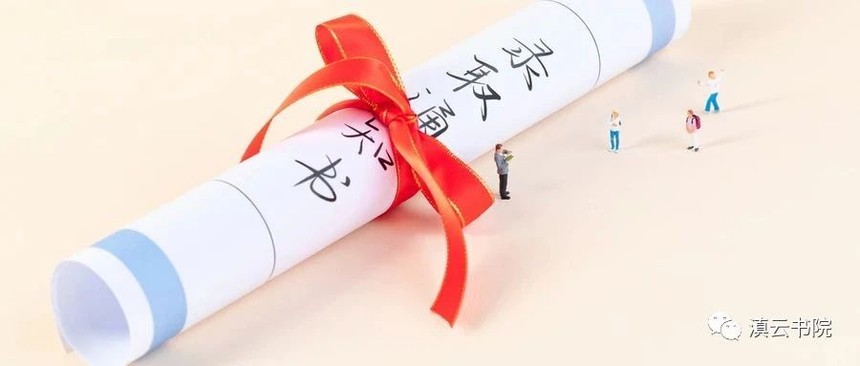 录取通知书
滇云书院